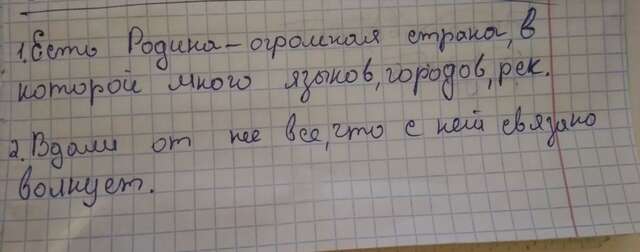 1. Есть Родина - огромная страна, в
которой много языков, городов, рек.
2. Вдали от нее все, что с ней связано
волнует.